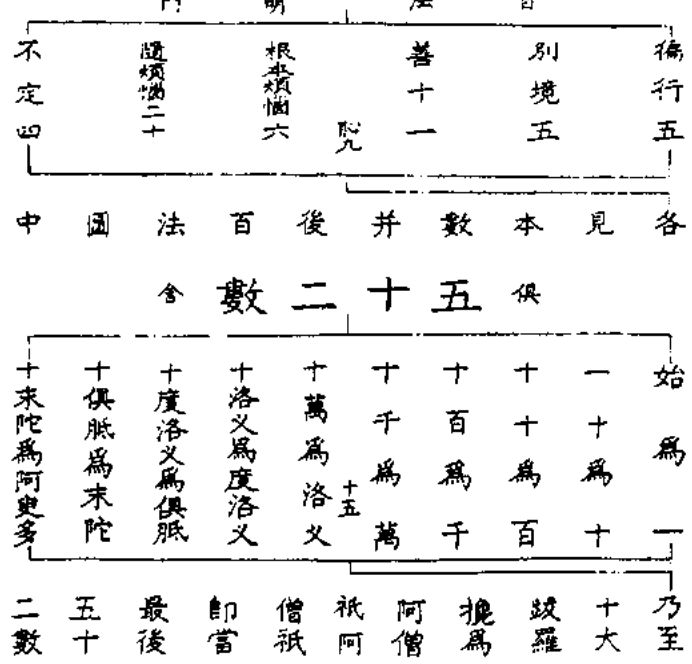 百法明門
徧行五
別境五
善十一
根本煩惱六
隨煩惱二十
不定四
各見本數并後百法圖中
俱五十二數舍
始爲一
一十爲十
十十爲百
十百爲千
十千爲萬
十五
十萬爲洛叉
十洛叉爲度洛叉
十度洛叉爲俱胝
十俱胝爲末陀
十末陀爲阿臾多
乃至
十大
跋羅
攙爲
阿僧
祇阿
僧祇
即當
最後
五十
二數